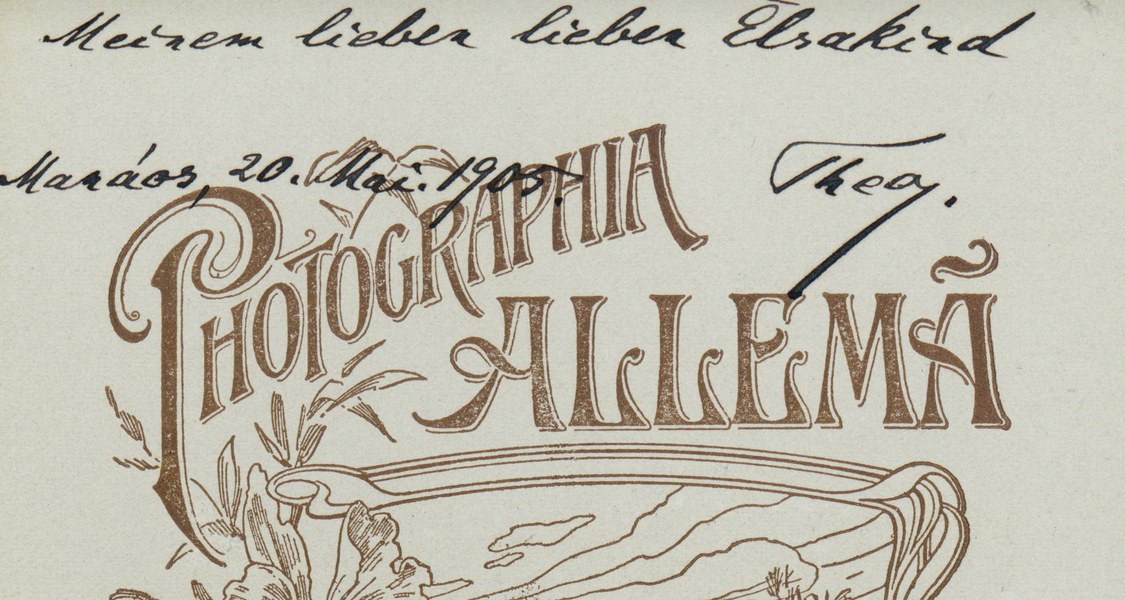 Meinem lieben lieben Elsakind
Manáos, 20. Mai. 1905. Theo.
PHOTOGRAPHIA
ALLEMÃ